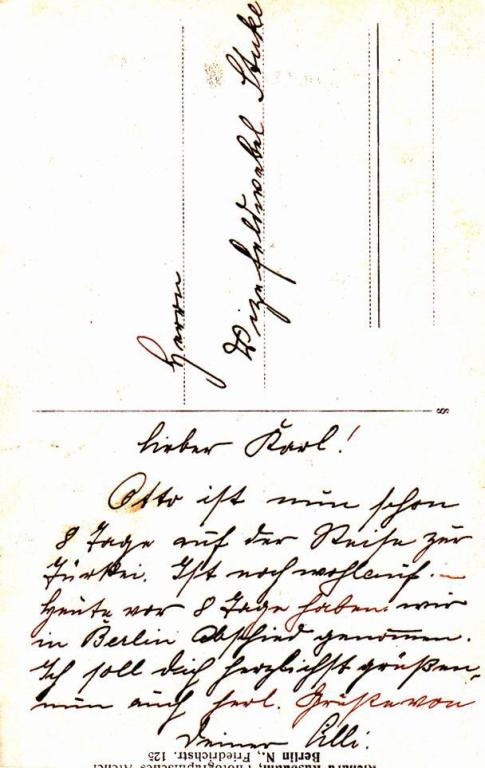 Herrn
Vizefeldwebel Stuke
Lieber Karl!
Otto ist nun schon
8 Tage auf der Reise zur
Türkei. Ist noch wohlauf. –
Heute vor 8 Tage haben wir
in Berlin Abschied genommen.
Ich soll dich herzlichst grüßen,
nun auch herl. Grüße von
Deiner Lilli.
Photographisches Atelier
Berlin N., Friedrichstr. 125